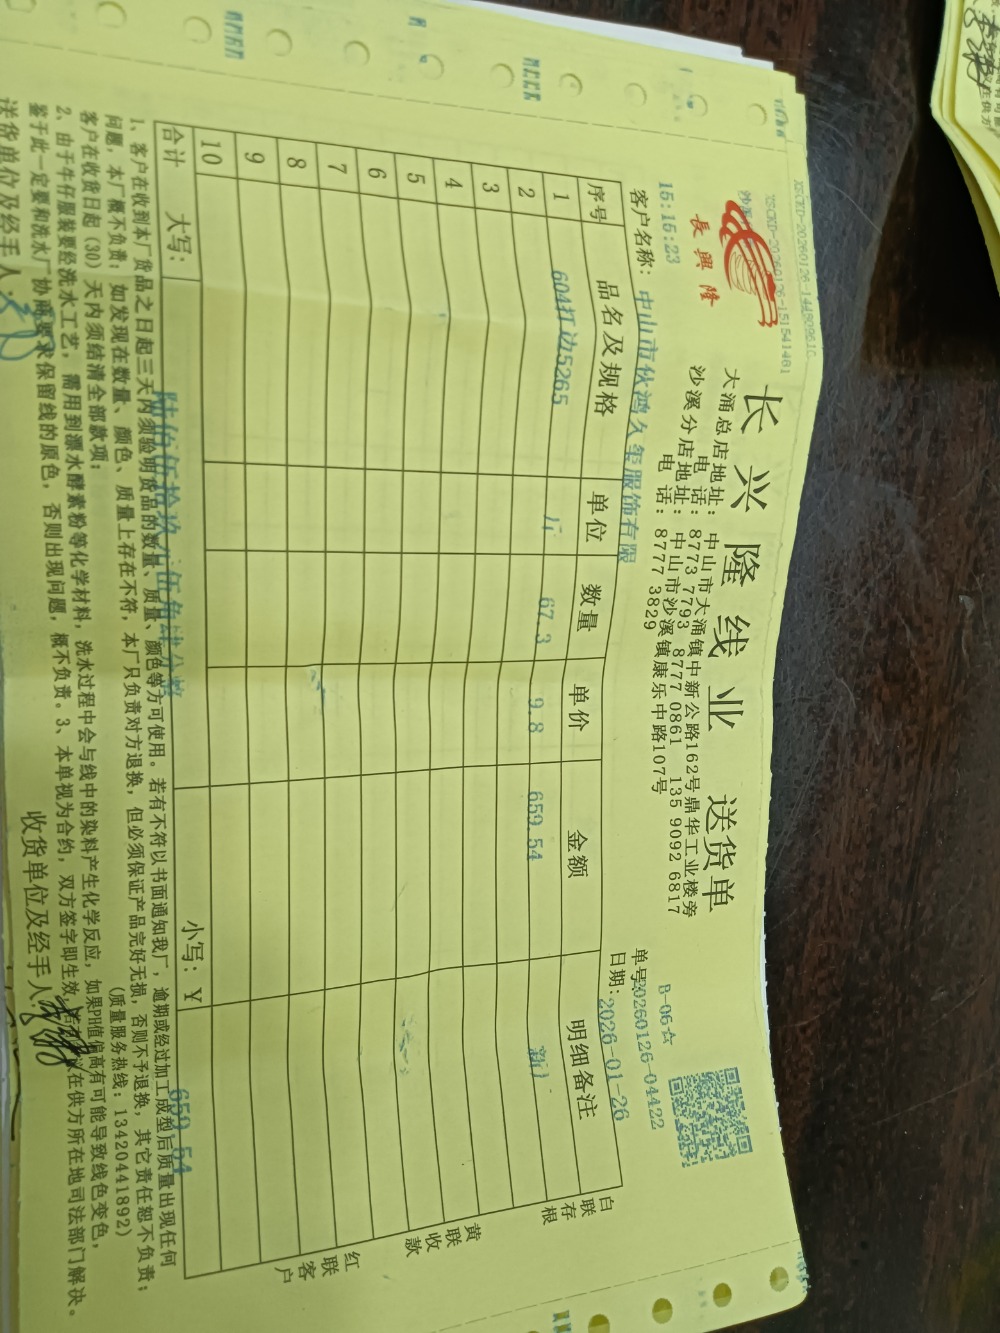 XSCKD-20260126-144809610
XSCKD-20260126-151541461
長興隆
长兴隆线业 送货单
大涌总店地址：中山市大涌镇中新公路162号鼎华工业楼旁
电 话：8773 7793 8777 0861 135 9092 6817
沙溪分店地址：中山市沙溪镇康乐中路107号
电 话：8777 3829
15:15:23
B-06仓
单号：20260126-04422
客户名称：中山市伙鸿久玺服饰有限
日期：2026-01-26
序号 品名及规格 单位 数量 单价 金额 明细备注
1 604打边5265 67.3 9.8 659.54
2
3
4
5
6
7
8
9
10
合计 大写：陆佰伍拾玖元伍角肆分整 小写：Y 659.54
白联存根
黄联收款
红联客户
1、客户在收到本厂货品之日起三天内须验明货品的数量、质量、颜色等方可使用。若有不符以书面通知我厂，逾期或经过加工成型后质量出现任何
问题，本厂概不负责；如发现在数量、颜色、质量上存在不符，本厂只负责对方退换，但必须保证产品完好无损，否则不予退换，其它责任恕不负责；
客户在收货日起（30）天内须结清全部款项； （质量服务热线：13420441892）
2、由于牛仔服装要经洗水工艺，需用到漂水酵素粉等化学材料，洗水过程中会与线中的染料产生化学反应，如果PH值偏高有可能导致线色变色，
鉴于此一定要和洗水厂协商要求保留线的原色，否则出现问题，概不负责。3、本单视为合约，双方签字即生效，在供方所在地司法部门解决。
送货单位及经手人： 收货单位及经手人：